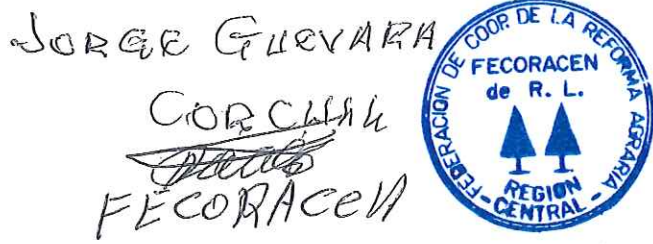 JORGE GUEVARA
FECORACEN
FEDERACION DE COOP. DE LA REFORMA AGRARIA
FECORACEN
de R. L.
REGION
- CENTRAL -